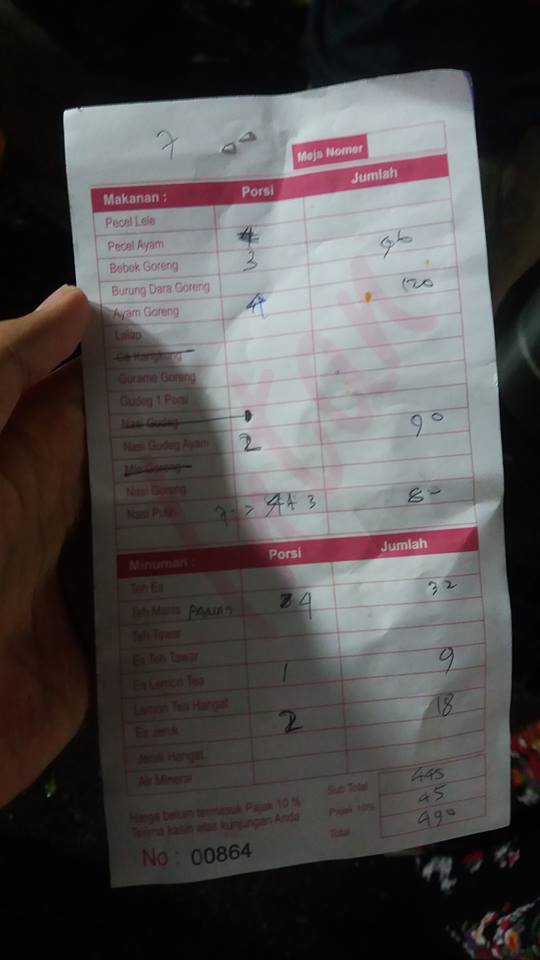 7 00
Meja Nomer
Makanan : Porsi Jumlah
Pecel Lele
Pecel Ayam 4
Bebek Goreng 3 96
Burung Dara Goreng
Ayam Goreng 4 120
Lalap
Ca Kangkung
Gurame Goreng
Gudeg 1 Porsi
Nasi Gudeg
Nasi Gudeg Ayam 2 90
Mie Goreng
Nasi Goreng
Nasi Putih 7 -> 4+3 80
Minuman : Porsi Jumlah
Teh Es
Teh Manis PANAS 4 32
Teh Tawar
Es Teh Tawar
Es Lemon Tea 1 9
Lemon Tea Hangat
Es Jeruk 2 18
Jeruk Hangat
Air Mineral
Harga belum termasuk Pajak 10 % Sub Total 445
Terima kasih atas kunjungan Anda Pajak 10% 45
Total 490
No : 00864